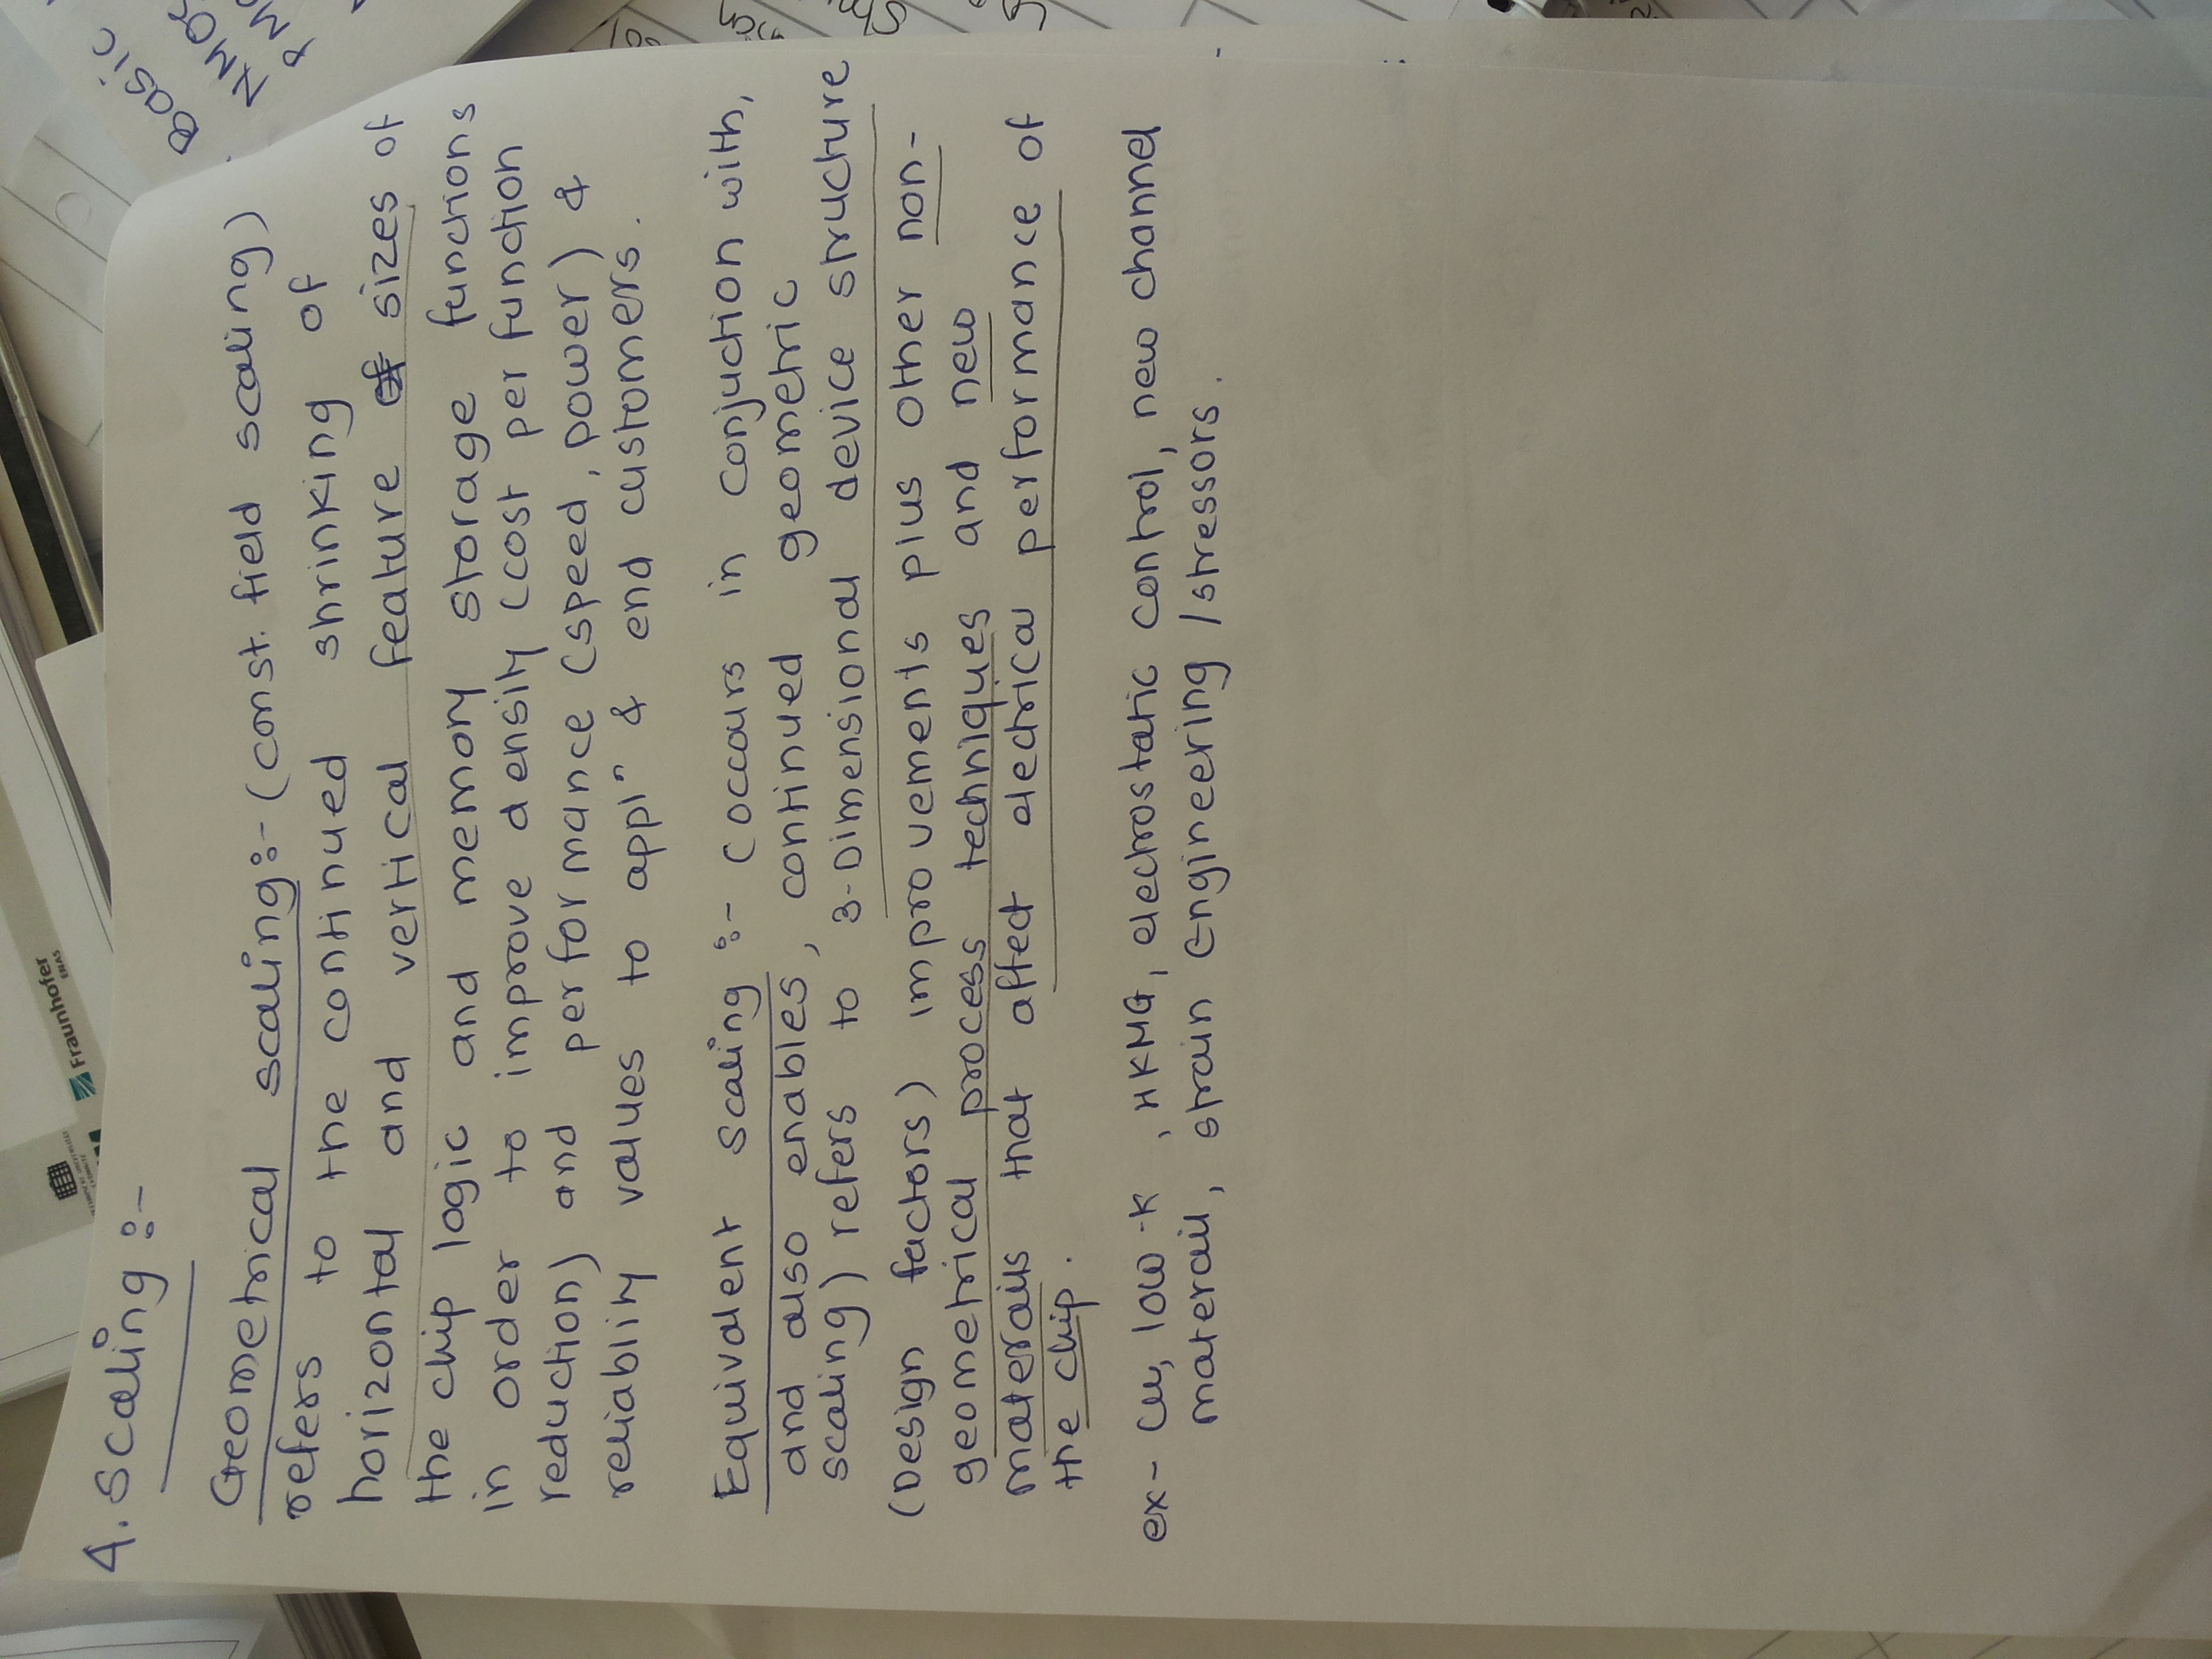 Fraunhofer
ENAS
4. Scaling :-
Geometrical scaling:- (const. field scaling)
refers to the continued shrinking of
horizontal and vertical feature sizes of
the chip logic and memory storage functions
in order to improve density (cost per function
reduction) and performance (speed, power) &
reliablity values to appln & end customers.
Equivalent scaling :- (occours in conjuction with,
and also enables, continued geometric
scaling) refers to 3-Dimensional device structure
(Design factors) improvements plus other non-
geometrical process techniques and new
materails that affect electrical performance of
the chip.
ex- Cu, low-K , HKMG, electrostatic control, new channel
materail, strain Engineering /stressors.
Basic